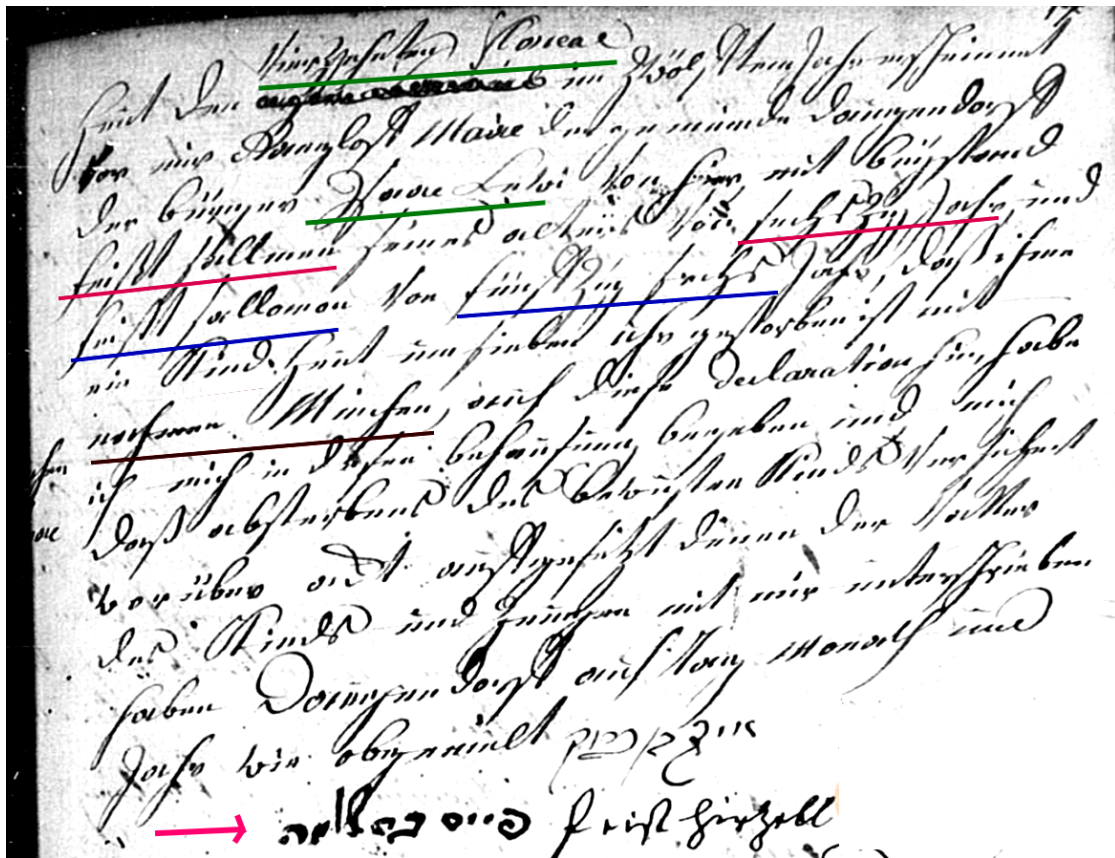 Vierzehnten Floreal
Heut den im Zwölften Jahr erscheinnet
vor mir Maire der gemeinde Daurgendorff
der bürger Isaac Lewi von hier, mit beÿstand
feist sallmen seines alters von sechszig Jahr, und
feist sallomon von fünffzig sechs Jahr, daß ihme
ein Kind heut um sieben uhr gestorben ist mit
nahmen Minchen, auf diese declaration hin, habe
ich mich in dessen behausung begeben und mich
daß absterbens des bewusten Kinds versichert
vorüber act aufgesetzt denen der Vatter
des Kinds und zeugen mit mir unterschrieben
haben auf tag monath und
Jahr wie obgemelt
פייס feist hirtzell